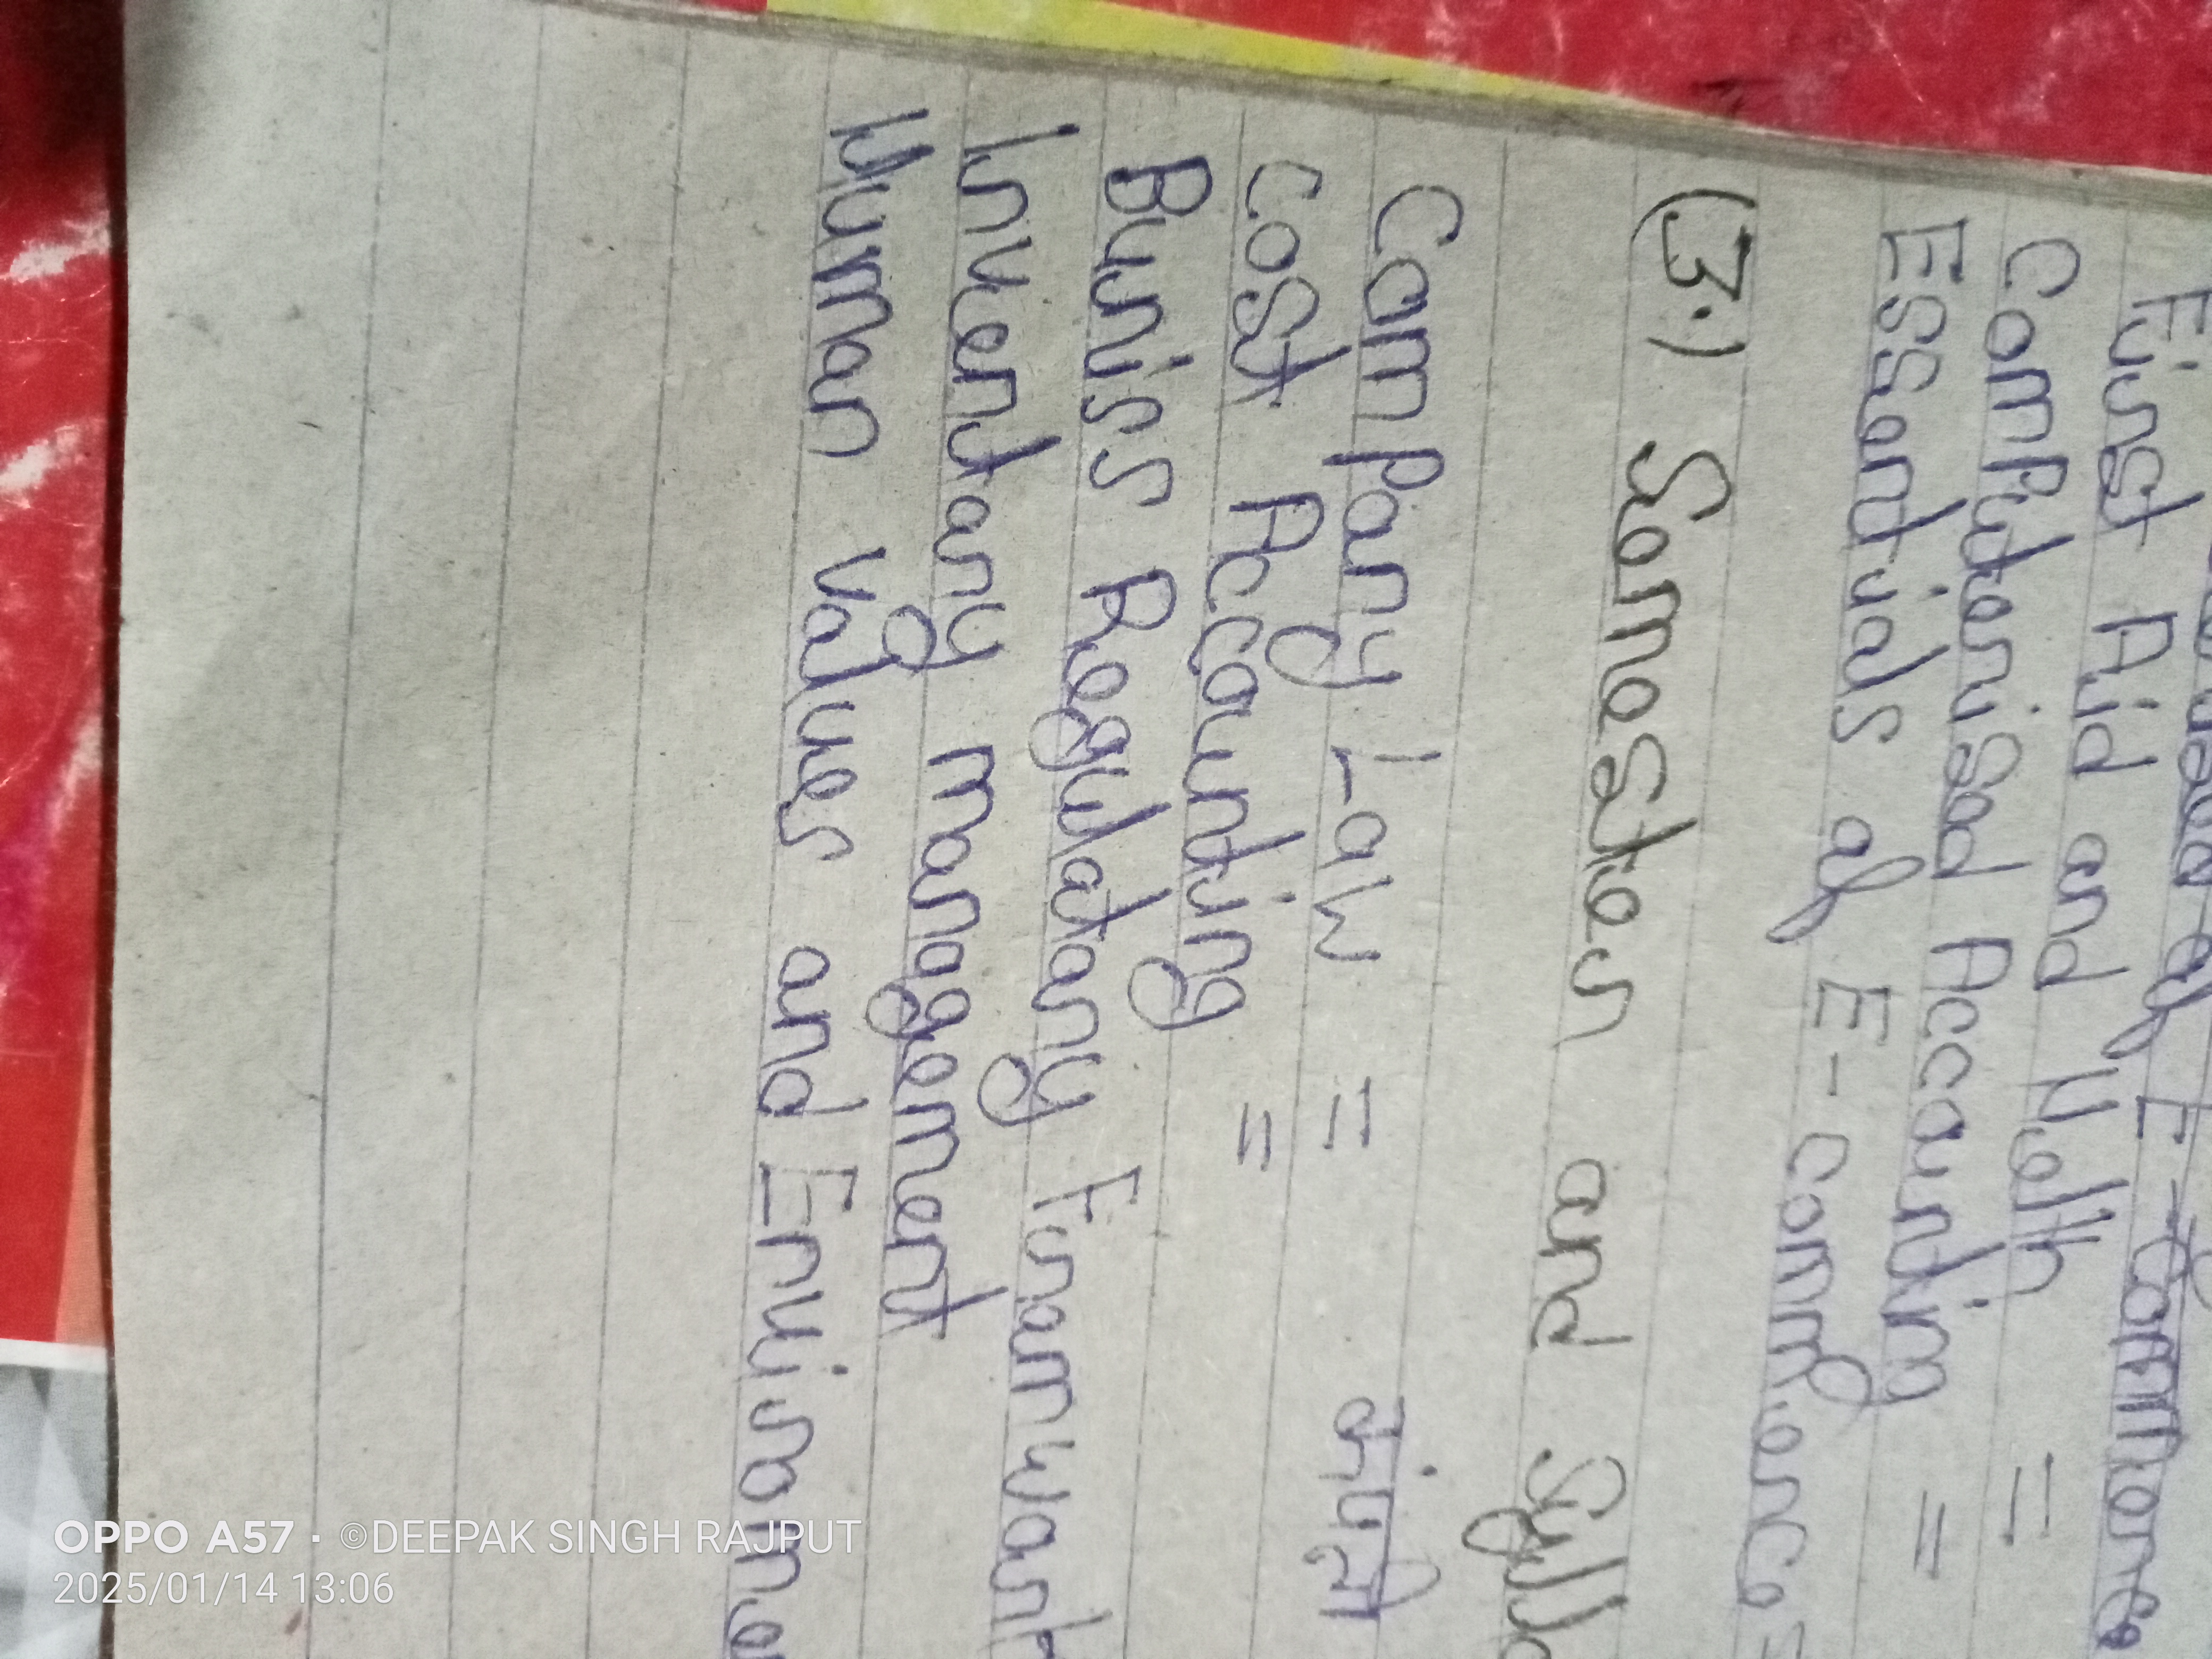 E-Commerce
First Aid and Helth =
Computerised Accounting =
Essentials of E-Commerce =
(3.) Semester and Sylla
Company Law = कंपनी
Cost Accounting =
Buniss Regulatory Framwark
Inventary management
Human Values and Envirome
OPPO A57 · ©DEEPAK SINGH RAJPUT
2025/01/14 13:06